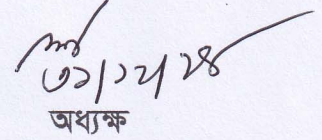 ৩১/১২/২৪
অধ্যক্ষ